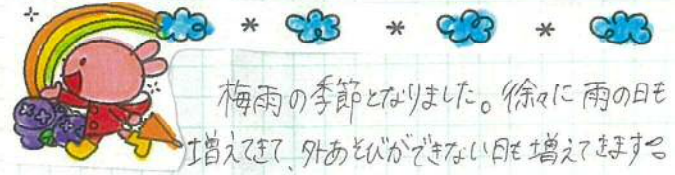 梅雨の季節となりました。徐々に雨の日も
増えてきて、外あそびができない日も増えてきます。